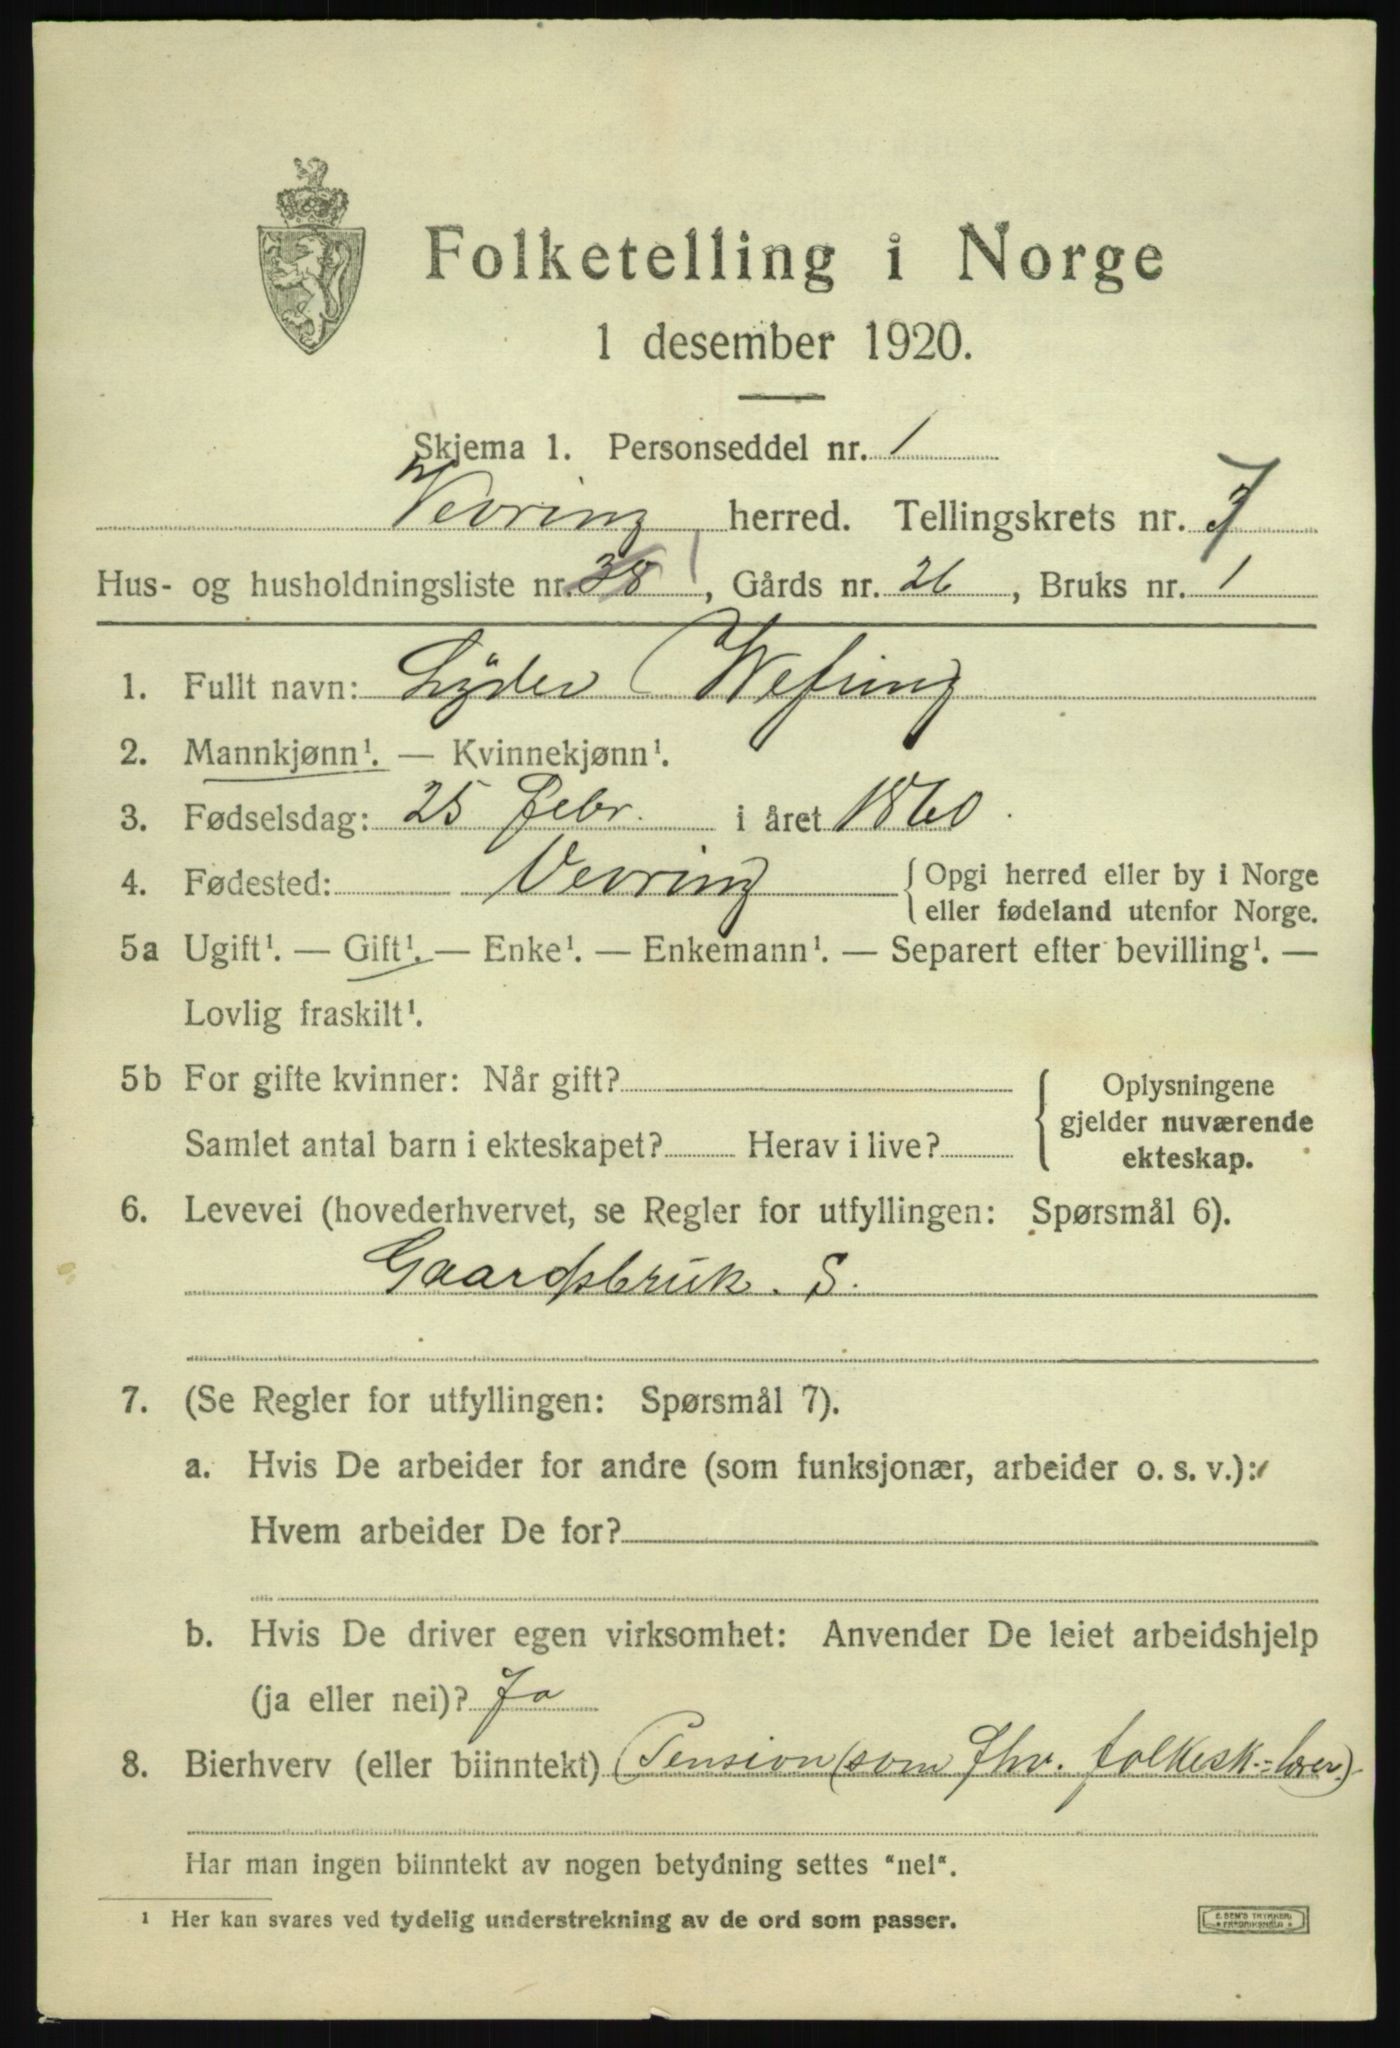 Folketelling i Norge
1 desember 1920.
Skjema 1. Personseddel nr. 1
Vevring herred. Tellingskrets nr. 7
Hus- og husholdningsliste nr. 38 1, Gårds nr. 26, Bruks nr. 1
1. Fullt navn: Lyder Wefring
2. Mannkjønn¹. — Kvinnekjønn¹.
3. Fødselsdag: 25 febr. i året 1860.
4. Fødested: Vevring { Opgi herred eller by i Norge
eller fødeland utenfor Norge.
5a Ugift¹. — Gift¹. — Enke¹. — Enkemann¹. — Separert efter bevilling¹. —
Lovlig fraskilt¹.
5b For gifte kvinner: Når gift?
Samlet antal barn i ekteskapet? Herav i live?
Oplysningene
gjelder nuværende
ekteskap.
6. Levevei (hovederhvervet, se Regler for utfyllingen: Spørsmål 6).
Gaardsbruk. S.
7. (Se Regler for utfyllingen: Spørsmål 7).
a. Hvis De arbeider for andre (som funksjonær, arbeider o. s. v.):
Hvem arbeider De for?
b. Hvis De driver egen virksomhet: Anvender De leiet arbeidshjelp
(ja eller nei)? Ja
8. Bierhverv (eller biinntekt) Pension (som fhv. folkesk.=lærer.)
Har man ingen biinntekt av nogen betydning settes "nei".
¹ Her kan svares ved tydelig understrekning av de ord som passer.